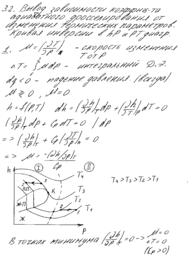 3.2. Вывод зависимости коэффиц-та
адиабатного дросселирования от
термических параметров.
Кривая инверсии в hP и PT диагр.
1. μ = (∂T/∂P)h - скорость изменения
T от P
ΔT = ∫ μ dP - интегральный Д.Э.
dP < 0 - падение давления (всегда)
μ ≷ 0, μ = 0
h = f(P,T) dh = (∂h/∂P)T dP + (∂h/∂T)P dT = 0
(∂h/∂P)T dP + Cp dT = 0 | dP
=> (∂h/∂P)T + Cp (∂T/∂P)h = 0
=> μ = -(∂h/∂P)T / Cp
h
T4
T3
T2
T1
Ж
P
T4 > T3 > T2 > T1
В точках минимума (∂h/∂P)T = 0 -> μ = 0
ΔT = 0
(Cp > 0)